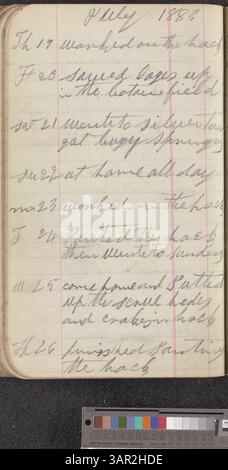 July 1883
Th 19 worked on the hack
Fr 20 sawed loges up
in the botam field
sat 21 wente to silver
got bugy springes
su 22 at home all day
mo 23 worked on the hack
T 24 the hack
then wente to
W 25 come home and Putted
up the
and in hack
Th 26 finnished Panting
the hack
alamy
Image ID: 3AR2HDE
www.alamy.com